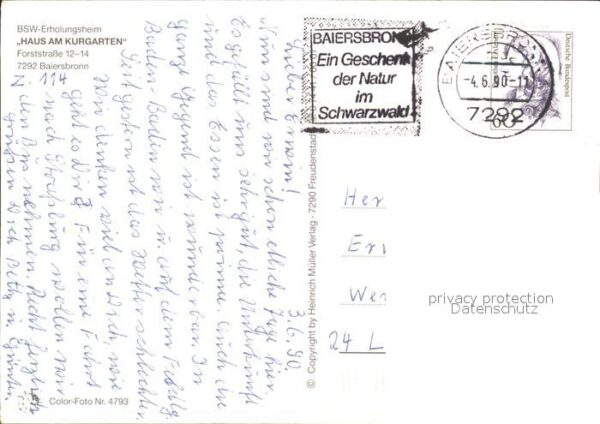 BSW-Erholungsheim
„HAUS AM KURGARTEN"
Forststraße 12-14
7292 Baiersbronn
Z. 114
BAIERSBRONN
Ein Geschenk
der Natur
im
Schwarzwald
BAIERSBRONN
-4.6.90-11
7292
60
Deutsche Bundespost
3.6.90.
Lieber Erwin!
Nun sind wir schon etliche Tage hier.
Es gefällt uns sehr gut, die Unterkunft
und Essen ist prima. Auch die
ganze Gegend ist wunderbar. In
Baden-Baden wir u. auf dem
Seit gestern ist das Wetter schlechter.
Wir denken viel an Dich, wie
geht es Dir? Für eine Fahrt
nach Straßburg wollen wir
den Bus nehmen. Recht
grüßen Dich Betty u. Günter
© Copyright by Heinrich Müller Verlag · 7290 Freudenstadt
Her
Er
We
24 L
privacy protection
Datenschutz
Color-Foto Nr. 4793